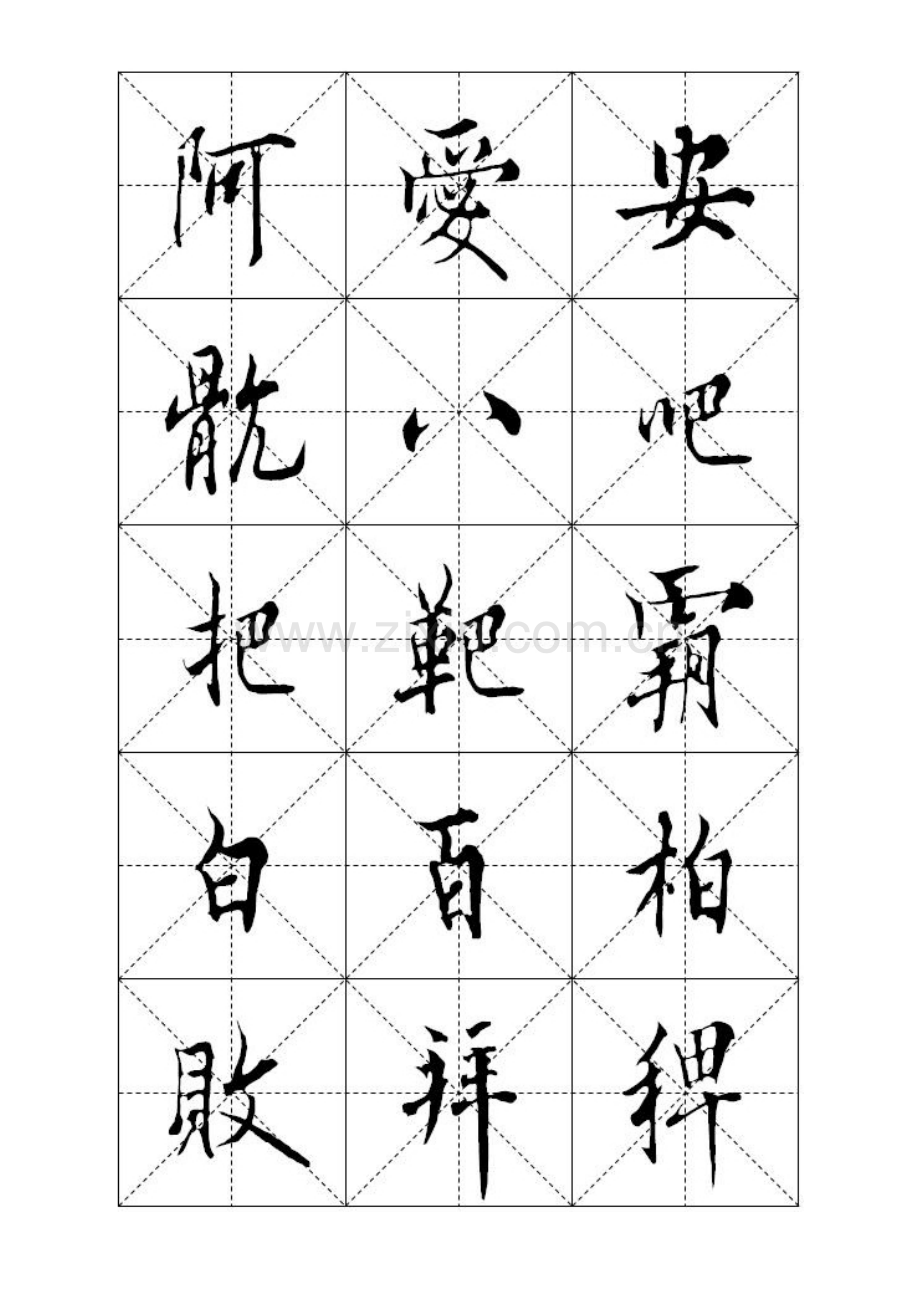 阿愛安
骯八吧
把靶霸
www.zixin.com.cn
白百柏
敗拜稗